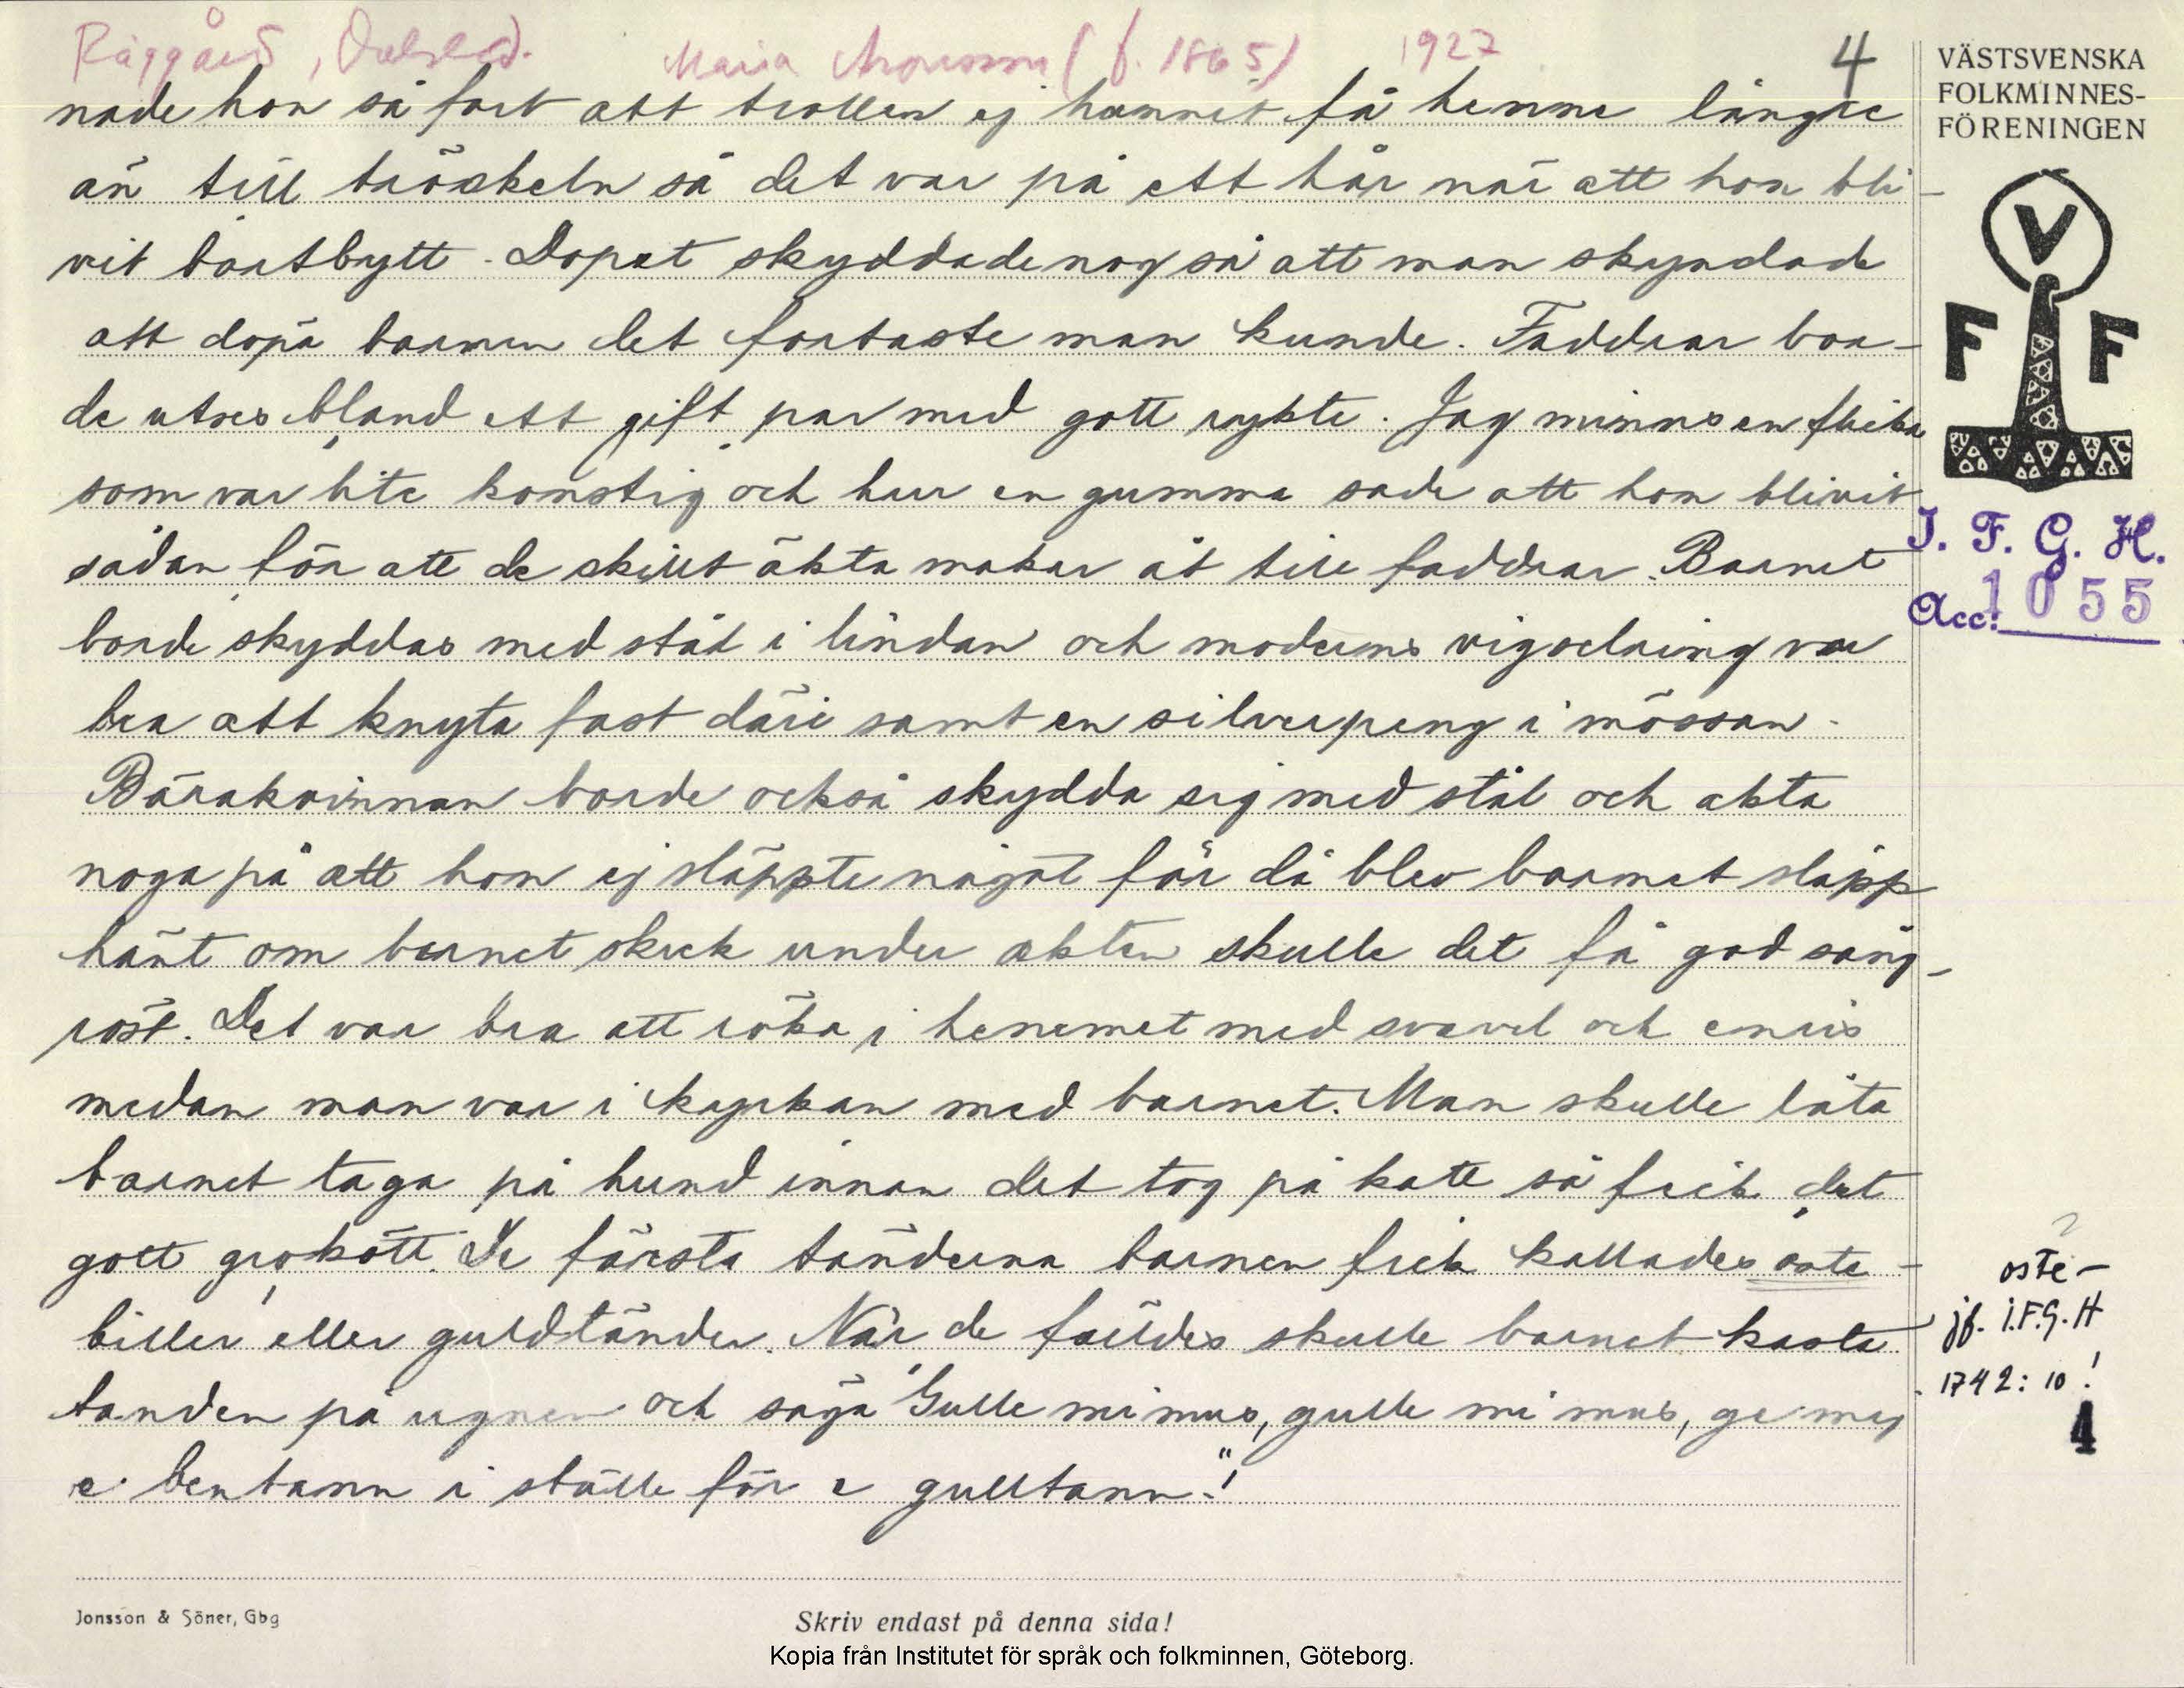 Råggärd, Dalsland. Maria Aronsson (f. 1865) 1927 4
nade hon så fort att trollen ej hannet få henne längre
än till tröskeln så det var på ett hår när att hon bli-
vit bortbytt. Dopet skyddade nog så att man skyndade
att döpa barnen det fortaste man kunde. Faddrar bor-
de utses bland ett gift par med gott rykte. Jag minns en flicka
som var lite konstig och hur en gumma sade att hon blivit
sådan för att de skillt äkta makar åt till faddrar. Barnet
borde skyddas med stål i lindan och moderns vigselring var
bra att knyta fast däri samt en silverpeng i mössan.
Bärakvinnan borde också skydda sig med stål och akta
noga på att hon ej släppte något för då blev barnet släpp
hänt om barnet skrek under akten skulle det få god sång-
röst. Det var bra att röka i hemmet med svavel och enris
medan man var i kyrkan med barnet. Man skulle låta
barnet taga på hund innan det tog på katt så fick det
gott grokött. De första tänderna barnen fick kallades oste-
biller eller guldtänder. När de fälldes skulle barnet kasta
tanden på ugnen och säga "Gulle mi mus, gulle mi mus, ge mej
e bentann i ställe för e gulltann"!
VÄSTSVENSKA
FOLKMINNES-
FÖRENINGEN
V
F F
I. F. G. H.
Acc. 1055
?
oste-
jf. I.F.G.H
1742: 10!
4
Jonsson & Söner, Gbg
Skriv endast på denna sida!
Kopia från Institutet för språk och folkminnen, Göteborg.